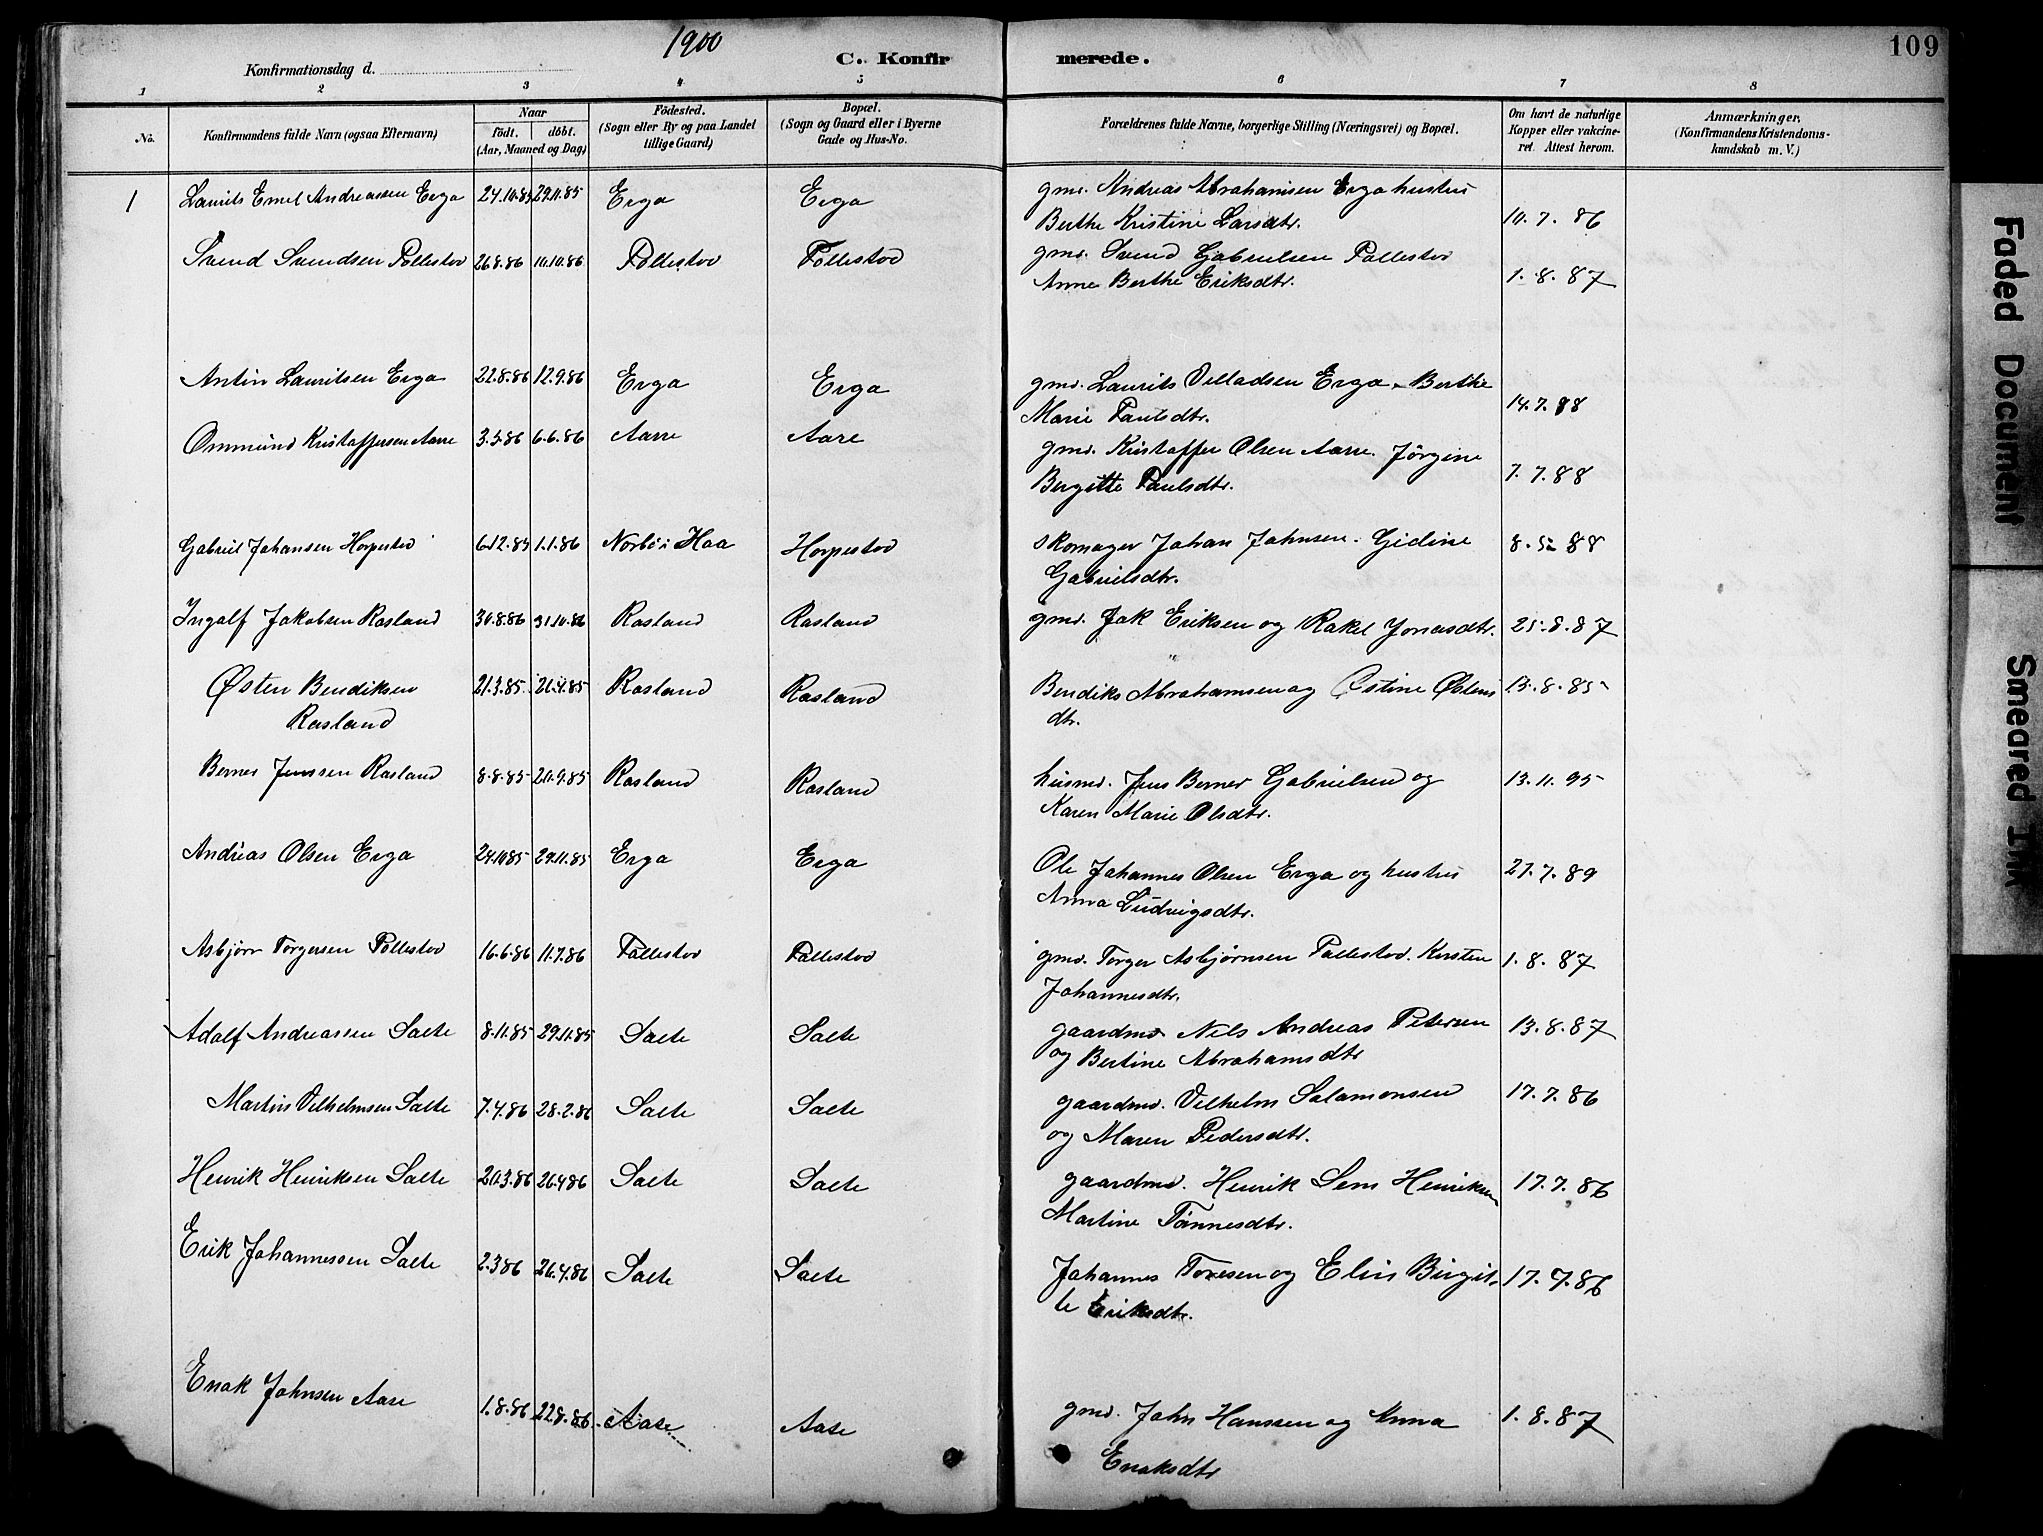 1900
109
Konfirmationsdag d.
C. Konfirmerede.
1 2 3 4 5 6 7 8
No.
Konfirmandens fulde Navn (ogsaa Efternavn)
Naar
født. døbt.
(Aar, Maaned og Dag)
Fødested.
(Sogn eller By og paa Landet
tillige Gaard)
Bopæl.
(Sogn og Gaard eller i Byerne
Gade og Hus-No.
Forældrenes fulde Navne, borgerlige Stilling (Næringsvei) og Bopæl.
Om havt de naturlige
Kopper eller vakcine-
ret. Attest herom.
Anmærkninger.
(Konfirmandens Kristendoms-
kundskab m. V.)
1 Laurits Emel Andreassen Erga 24.10.85 29.11.85 Erga Erga gmd. Andreas Abrahamsen Erga hustru
Berthe Kristine Larsdtr. 10.7.86
Svend Svendsen Pollestad 26.8.86 10.10.86 Pollestad Pollestad gmd. Svend Gabrielsen Pollestad
Anne Berthe Eriksdtr. 1.8.87
Antin Lauritsen Erga 22.8.86 12.9.86 Erga Erga gmd. Laurits Villadsen Erga. Berthe
Marie Paulsdtr. 14.7.88
Ommund Kristoffersen Aarre 3.5.86 6.6.86 Aarre Aare gmd. Kristoffer Olsen Aarre. Jørgine
Bergitte Paulsdtr. 7.7.88
Gabriel Johansen Horpestad 6.12.85 1.1.86 Norbø i Haa Horpestad skomager Johan Johnsen. Gidine
Gabrielsdtr. 8.5.88
Ingolf Jakobsen Rosland 30.8.86 31.10.86 Rosland Rosland gmd. Jak Eriksen og Rakel Jonasdtr. 25.8.87
Østen Bendiksen
Rosland 21.3.85 26.4.85 Rosland Rosland Bendiks Abrahamsen og Østine Østens
dtr. 13.8.85
Berner Jenssen Rosland 8.8.85 20.9.85 Rosland Rosland husmd. Jens Berner Gabrielsen og
Karen Marie Olsdtr. 13.11.95
Andreas Olsen Erga 24.10.85 29.11.85 Erga Erga Ole Johannes Olsen Erga og hustru
Anna Ludvigsdtr. 27.7.89
Asbjørn Torgersen Pollestad 16.6.86 11.7.86 Pollestad Pollestad gmd. Torger Asbjørnsen Pollestad. Kirsten
Johannesdtr. 1.8.87
Adolf Andreassen Salte 8.11.85 29.11.85 Salte Salte gaardmd Nels Andreas Petersen
og Bertine Abrahamsdtr 13.8.87
Martin Vilhelmsen Salte 7.4.86 28.2.86 Salte Salte gaardmd. Vilhelm Salamonsen
og Maren Pedersdtr. 17.7.86
Henrik Henriksen Salte 20.3.86 26.4.86 Salte Salte gaardmd. Henrik Sem Henriksen
Martine Tønnesdtr. 17.7.86
Erik Johannessen Salte 2.3.86 26.4.86 Salte Salte Johannes Toresen og Elin Birgit-
te Eriksdtr. 17.7.86
Enok Johnsen Aase 1.8.86 22.8.86 Aase Aase gmd. John Hanssen og Anna
Enoksdtr 1.8.87
Faded Document
Smeared Ink